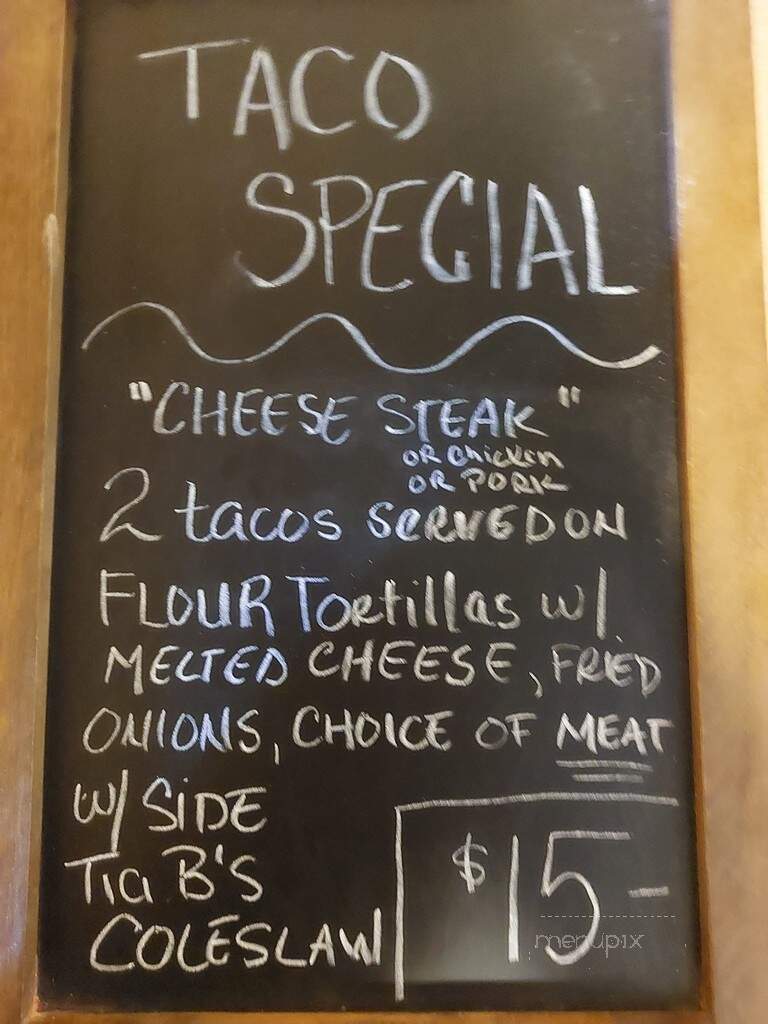 TACO
SPECIAL
"CHEESE STEAK"
OR Chicken
OR PORK
2 tacos SERVED ON
FLOUR Tortillas w/
MELTED CHEESE, FRIED
ONIONS, CHOICE OF MEAT
W/ SIDE
Tia B'S
COLESLAW
$15-
menupix